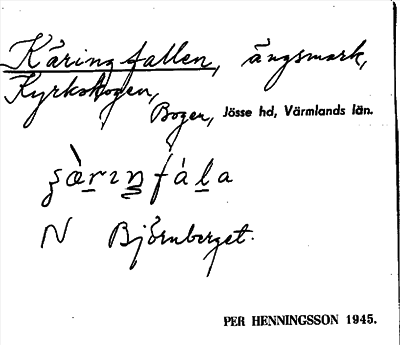 Käringfallen, ängsmark,
Kyrkskogen,
Boger, Jösse hd, Värmlands län.
N Björnberget.
PER HENNINGSSON 1945.